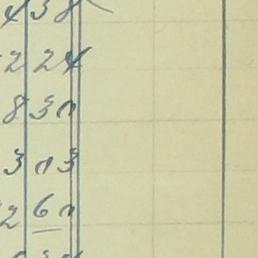 4 38
2 24
8 3n
3 n3
2 6n